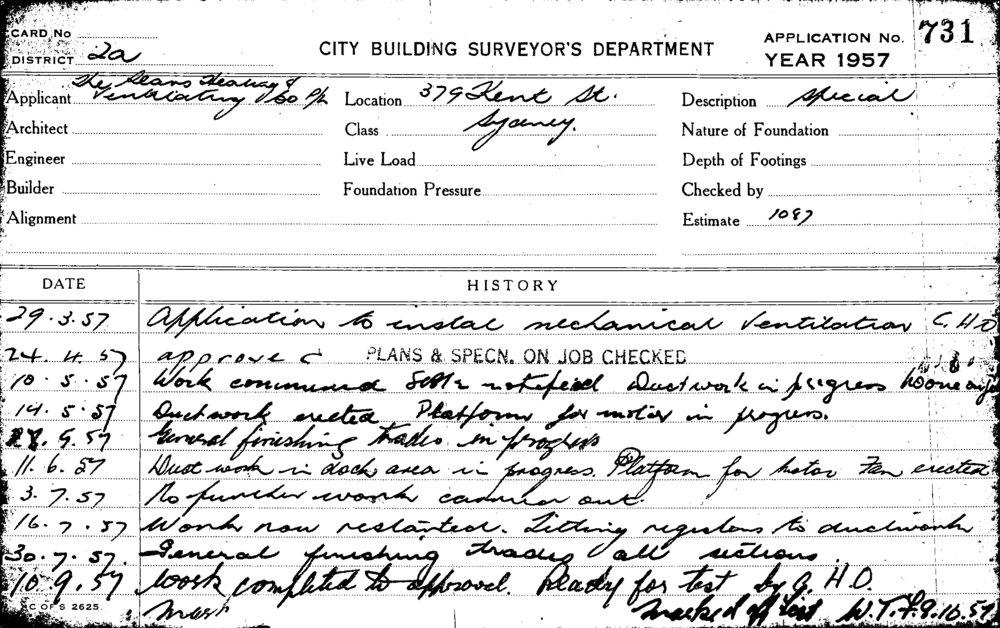 CARD No
DISTRICT 2a
CITY BUILDING SURVEYOR'S DEPARTMENT
APPLICATION No. 731
YEAR 1957
Applicant The Heating &
Ventilating Co P/L
Location 379 Kent St.
Sydney.
Description special
Architect
Class
Nature of Foundation
Engineer
Live Load
Depth of Footings
Builder
Foundation Pressure
Checked by
Alignment
Estimate 1087
DATE HISTORY
29.3.57 Application to instal mechanical Ventilation C.H.O
24.4.57 approved PLANS & SPECN. ON JOB CHECKED
10.5.57 Work commenced notified Ductwork in progress
14.5.57 Ductwork erected Platform for motor in progress.
57 General finishing trades in progress
11.6.57 Duct work in dock area in progress. Platform for motor Fan erected
3.7.57 No further work carried out.
16.7.57 Work now restarted. Fitting registers to ductwork
30.7.57. General finishing trades all sections.
10.9.57 Work completed to approval. Ready for test by C.H.O.
C OF S 2625
Marked off list W.T.F. 9.10.57